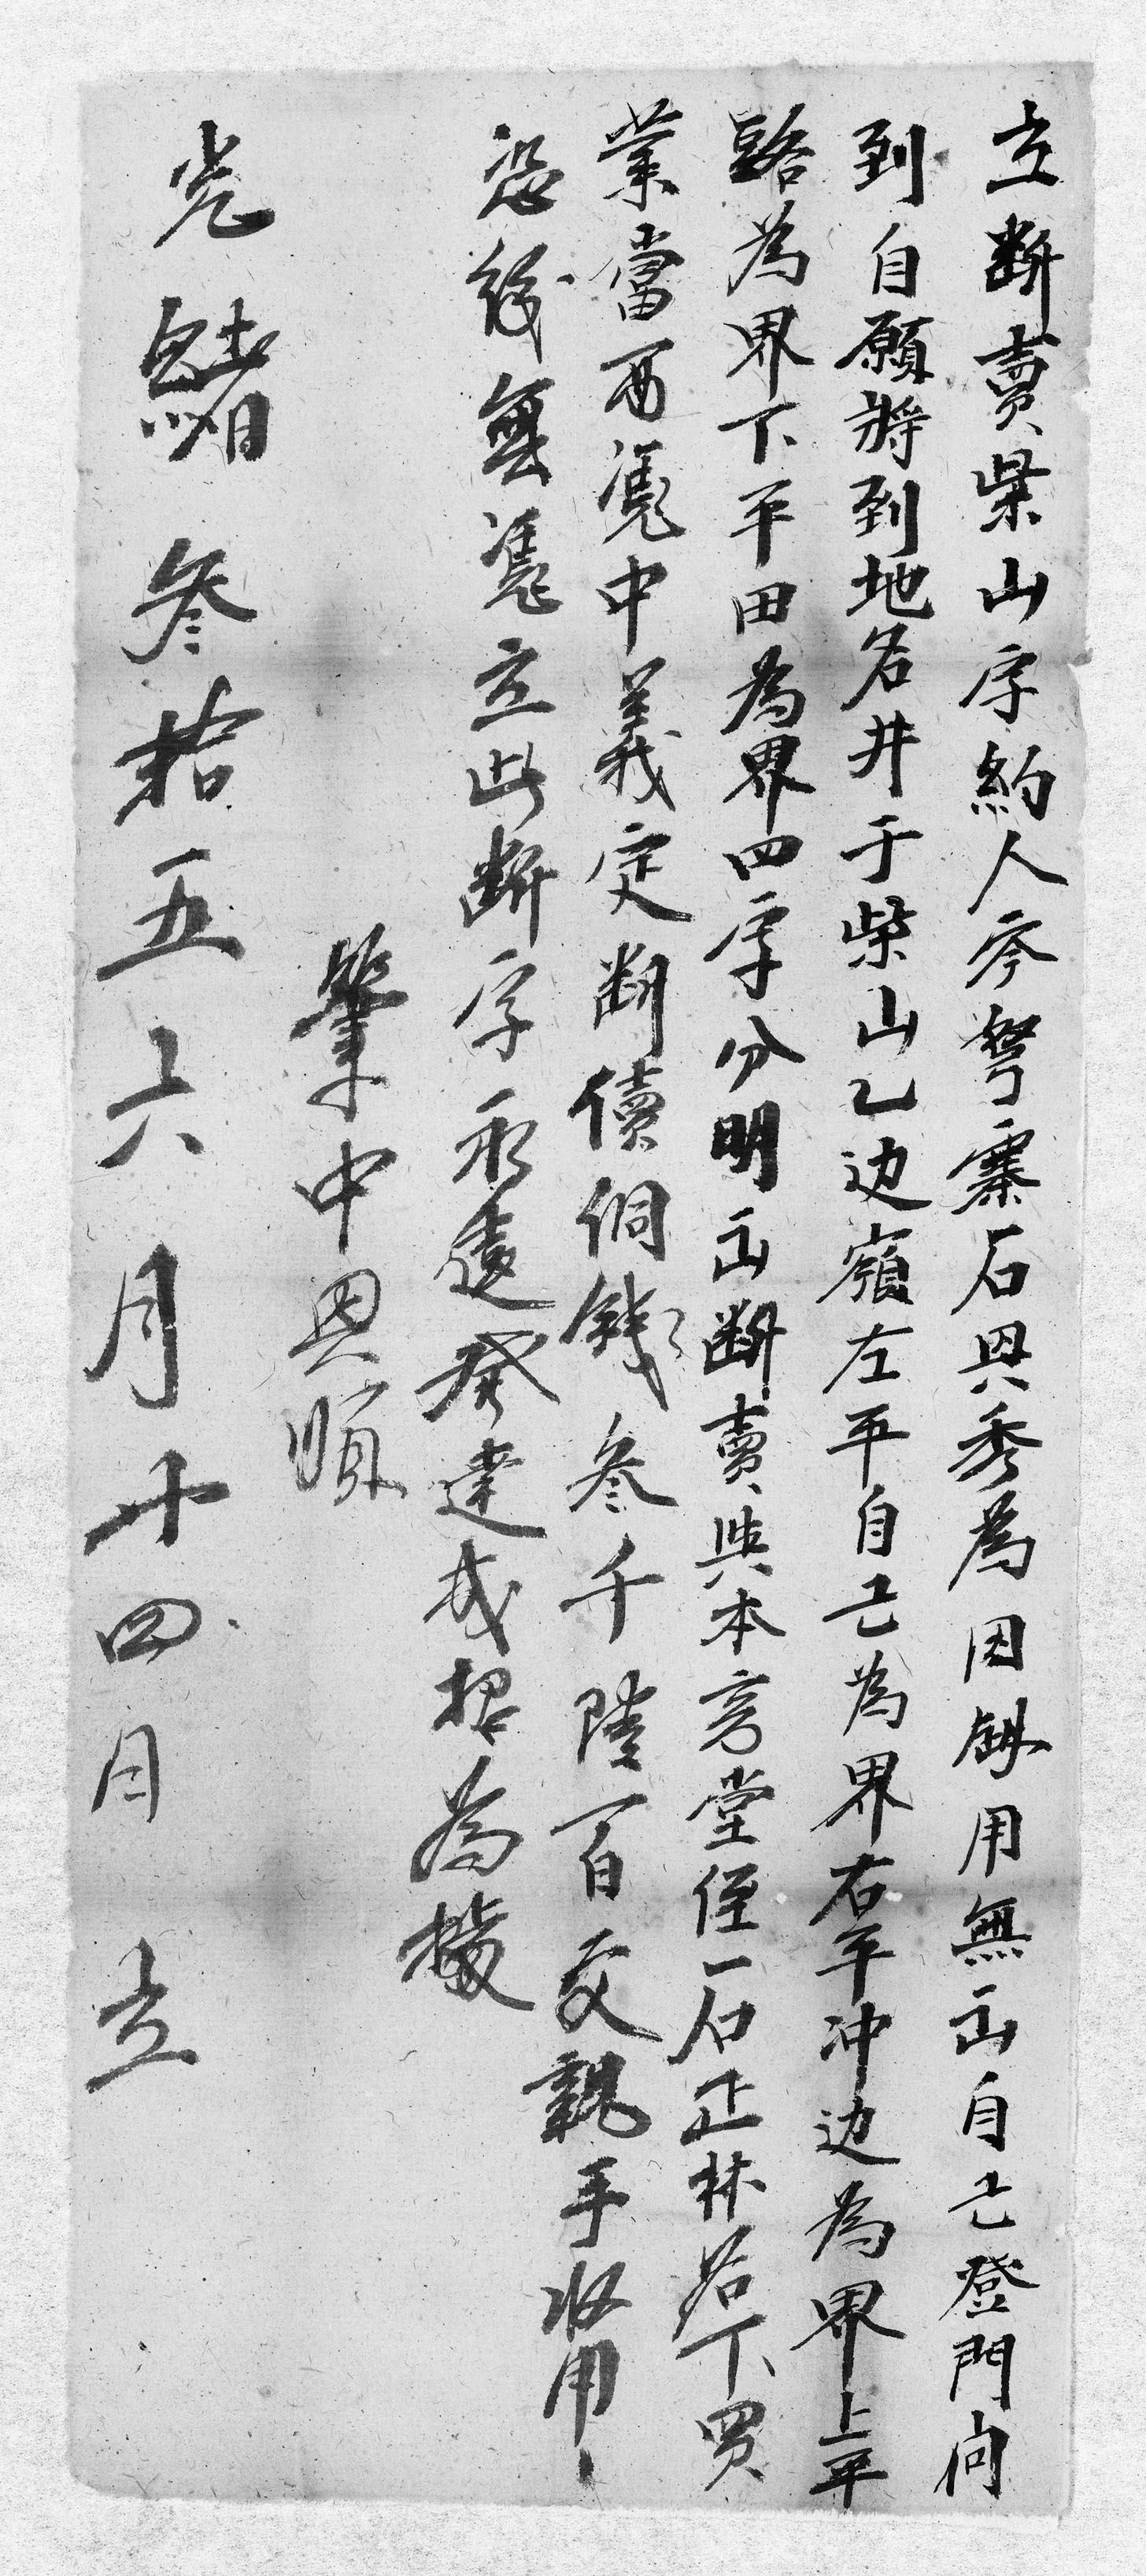 立断賣柴山字約人岑弩寨石恩秀為因缺用無出自己登門向
到自願將到地名井于柴山乙边嶺左平自己為界右平冲边為界上平
路為界下平田為界四字分明出断賣與本房堂侄石正林名下買
業當面凭中義定断價銅錢叁千陸百文親手收用
恐後無凭立此断字永遠發達成招為據
筆中恩順
光緒叁拾五六月十四日立